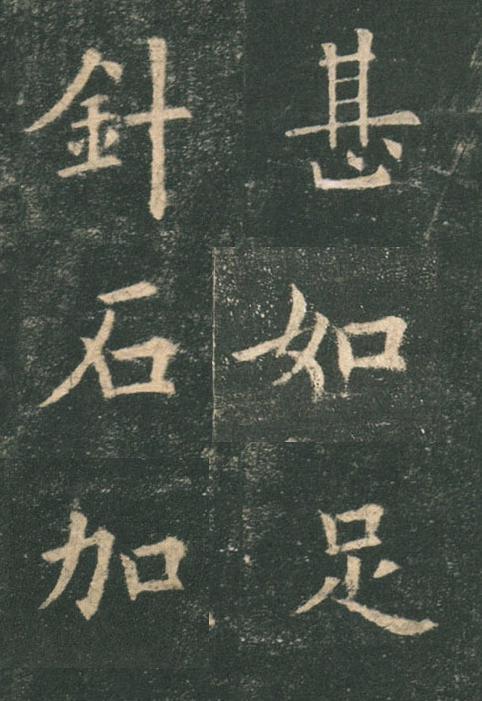 甚如足
針石加